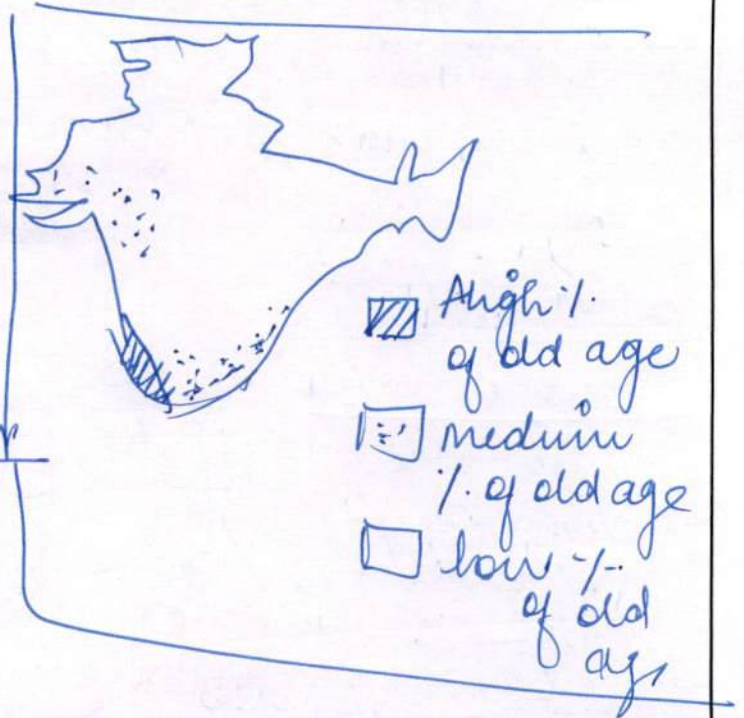 high %
of old age
medium
% of old age
low %
of old
age